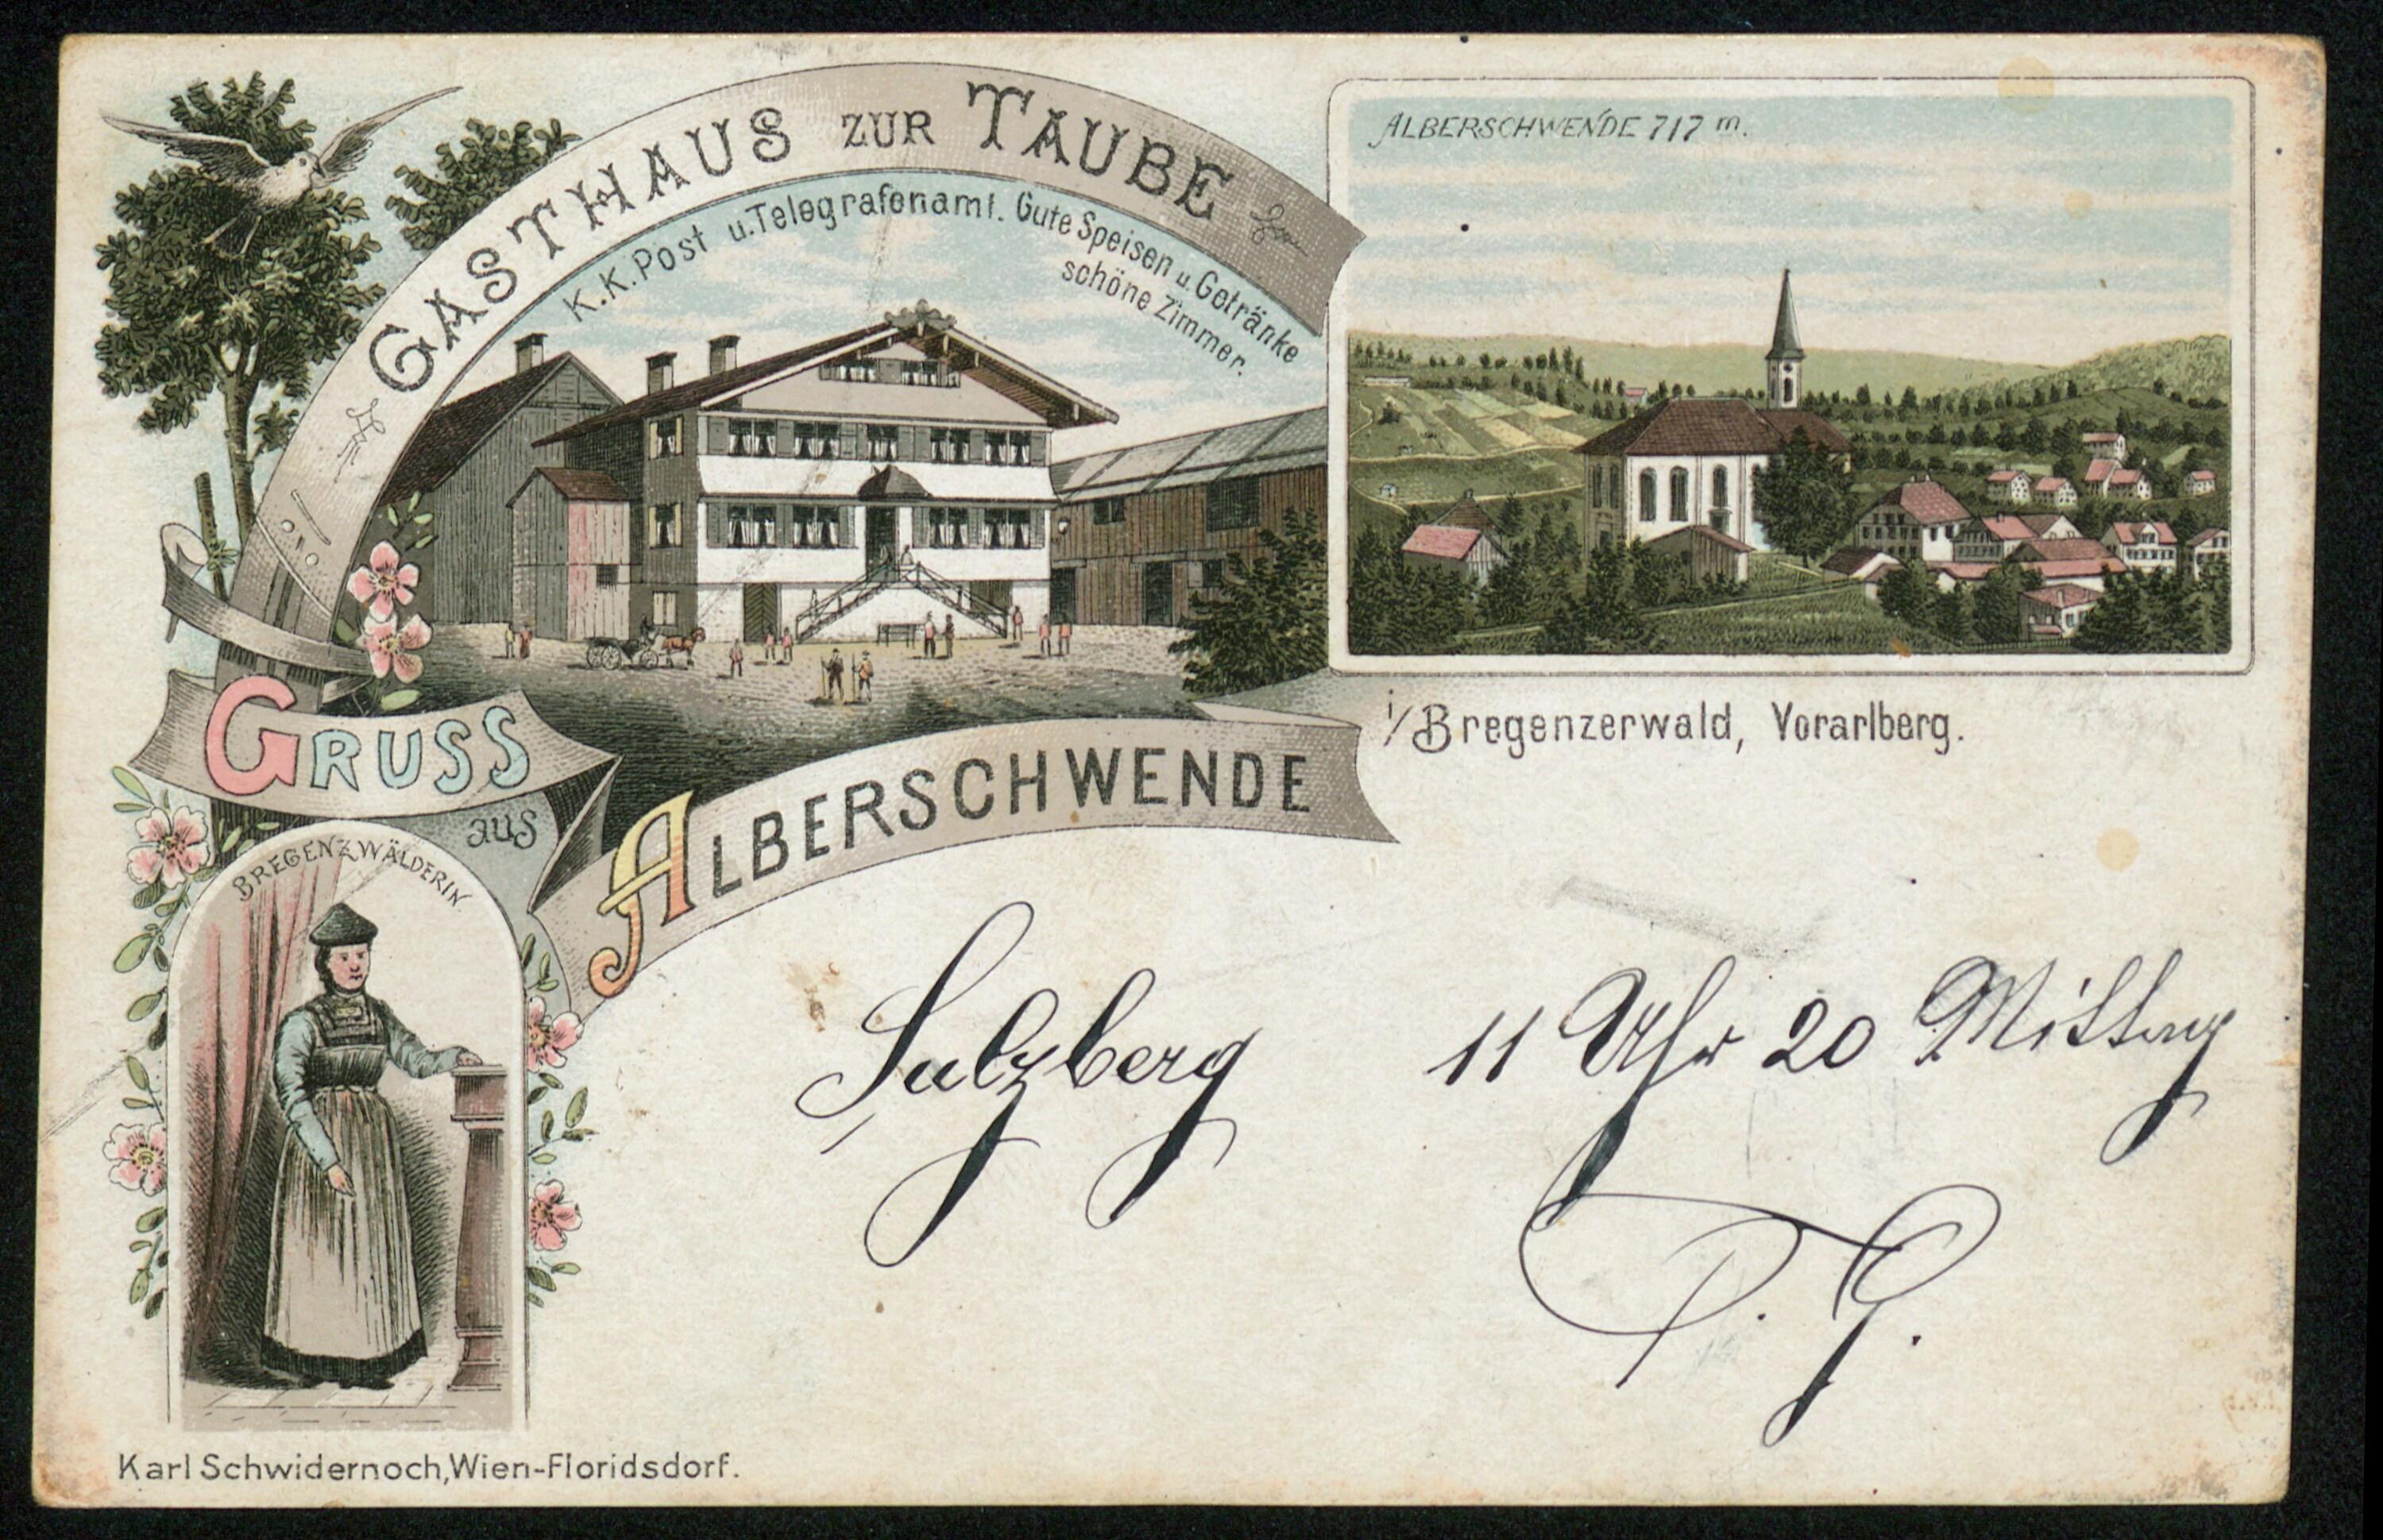 GASTHAUS ZUR TAUBE
K.K.Post u.Telegrafenamt. Gute Speisen u. Getränke
schöne Zimmer.
ALBERSCHWENDE 717 m.
i/Bregenzerwald, Vorarlberg.
GRUSS
aus
ALBERSCHWENDE
BREGENZWÄLDERIN
Sulzberg 11 Uhr 20 Mittag
P. G.
Karl Schwidernoch,Wien-Floridsdorf.